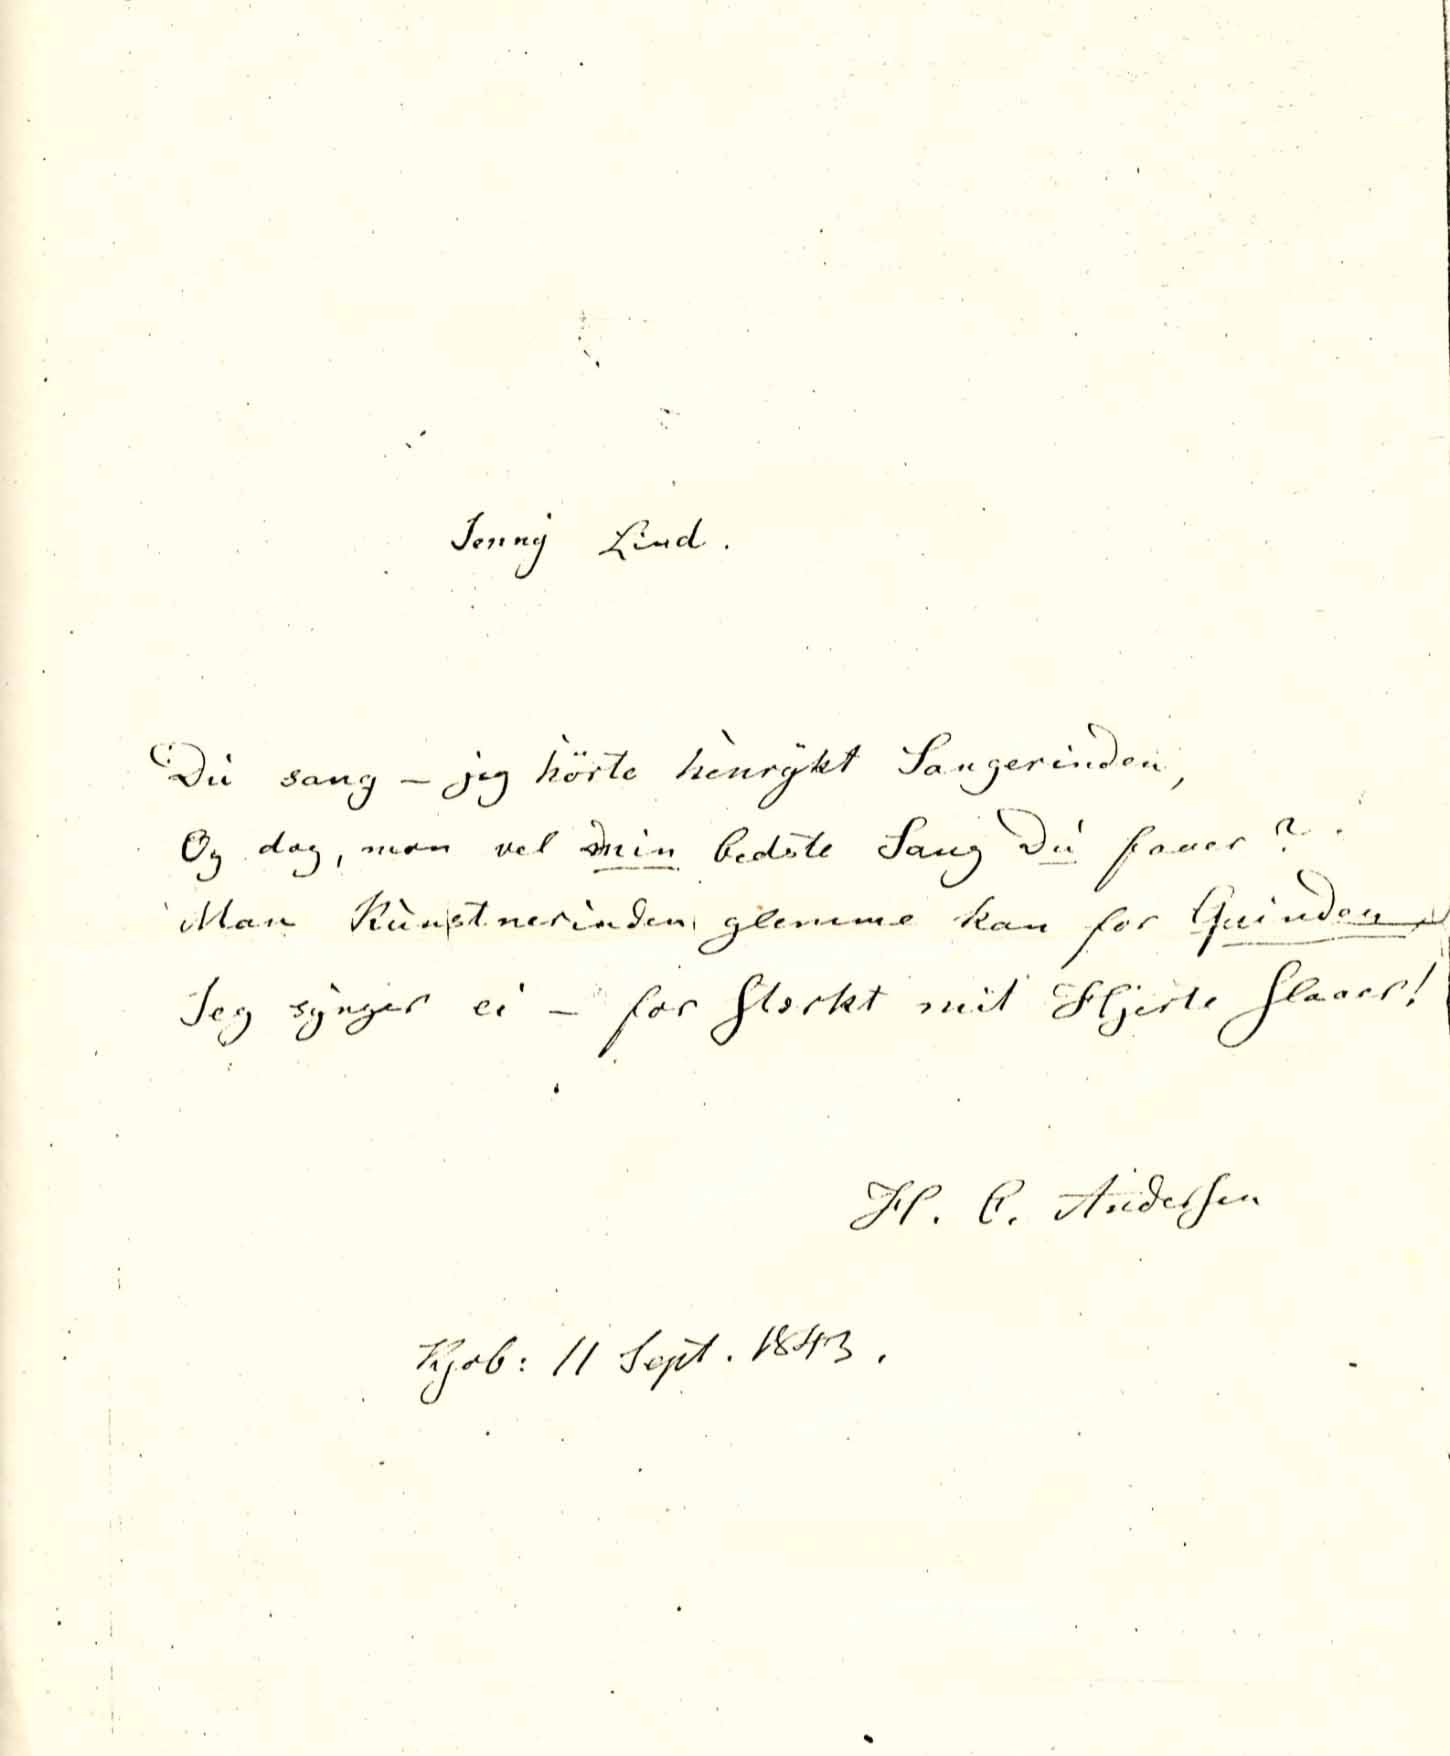 Jenny Lind.
Du sang – jeg hörte henrykt Sangerinden,
Og dog, mon vel min bedste Sang Du faaer?
Man Kunstnerinden glemme kan for Quinden,
Jeg synger ei – for stærkt mit Hjerte slaaer!
H. C. Andersen
Kjøb: 11 Sept. 1843.